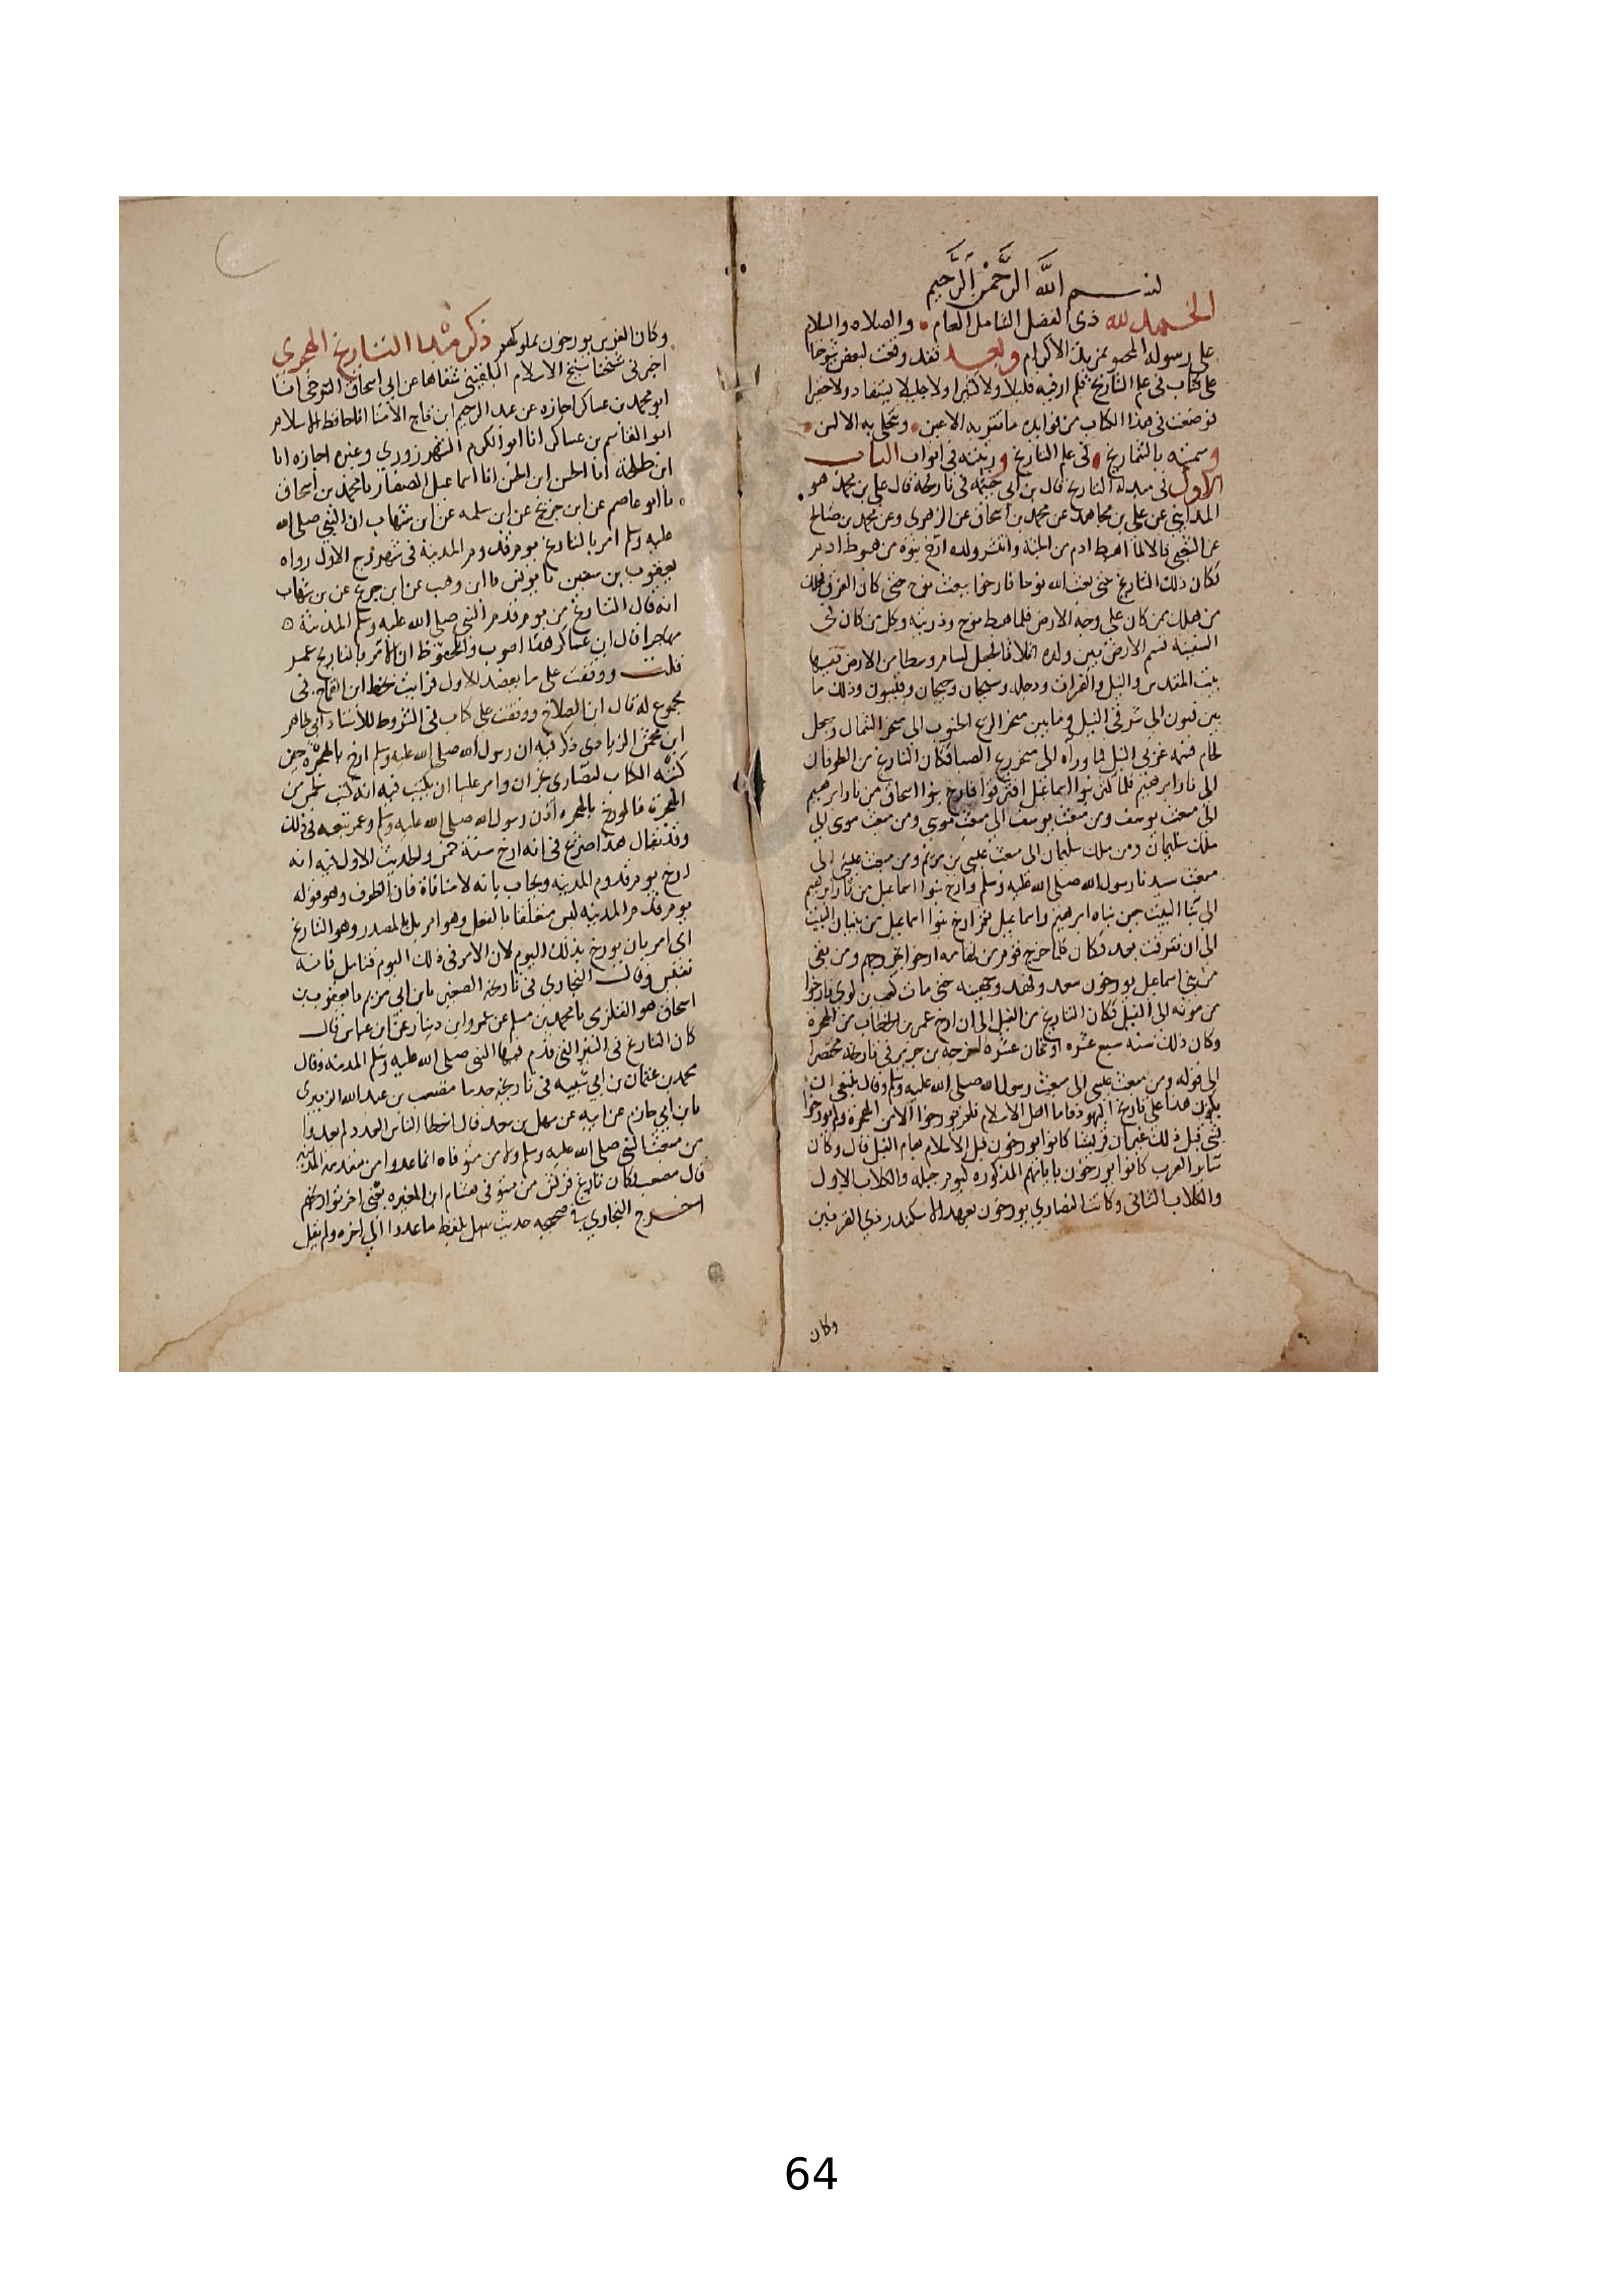 بسم الله الرَّحْمٰنِ الرَّحِيمِ
الحمد لله ذي الفضل الشامل العام والصلاه والسلام
على رسوله المخصو بمزيد الاكرام وبعد فقد وقفت لبعض شيوخنا
على كتاب في علم التاريخ فلم ار فيه قليلا ولا كثيرا ولا جليلا يستفاد ولا حقيرا
فوضعت في هذا الكتاب من فوايده ما تقر به الاعين وتتحلى به الالسن
وسميته بالشماريخ في علم التاريخ ورتبته في ابواب الباب
الاول في مبدا التاريخ قال بن ابي خيثمة في تاريخه قال علي بن محمد هو
المدايني عن علي بن مجاهد عن محمد بن اسحاق عن الزهري وعن محمد بن صالح
عن الشعبي قالا لما اهبط ادم من الجنة وانتشر ولده ارخ بنوه من هبوط ادم
فكان ذلك التاريخ حتى بعث الله نوحا فارخوا ببعث نوح حتى كان الغرق فهلك
من هلك ممن كان على وجه الارض فلما هبط نوح وذريته وكل من كان في
السفينة قسم الارض بين ولده اثلاثا فجعل لسام وسطا من الارض ففيها
بيت المقدس والنيل والفرات ودجله وسيحان وجيحان وفيسون وذلك ما
بين فيسون الى شرقي النيل وما بين منخر الريح الجنوب الى منخر الشمال وجعل
لحام قسمه غربي النيل فما وراه الى منخر ريح الصبا فكان التاريخ من الطوفان
الى نار ابرهيم فلما كثر بنوا اسماعيل افترقوا فارخ بنوا اسحاق من نار ابرهيم
الى مبعث يوسف ومن مبعث يوسف الى مبعث موسى ومن مبعث موسى الى
ملك سليمان ومن ملك سليمان الى مبعث عيسى بن مريم ومن مبعث عيسى الى
مبعث سيدنا رسول الله صلى الله عليه وسلم وارخ بنوا اسماعيل من نار ابرهيم
الى بنا البيت حين بناه ابرهيم واسماعيل ثم ارخ بنوا اسماعيل من بنيان البيت
الى ان تفرقت بعد فكان كلما خرج قوم من تهامه ارخوا بخروجهم ومن بقى
من بني اسماعيل يورخون سعد ونهد وجهينه حتى مات كعب بن لوي فارخوا
من موته الى الفيل فكان التاريخ من الفيل الى ان ارخ عمر بن الخطاب من الهجرة
وكان ذلك سنه سبع عشره او ثمان عشره اخرجه بن جرير في تاريخه مختصرا
الى قوله ومن مبعث عيسى الى مبعث رسول الله صلى الله عليه وسلم وقال ينبغي ان
يكون هذا على تاريخ اليهود فاما اهل الاسلام فلم يورخوا الا من الهجرة ولم يورخوا
بشى قبل ذلك غير ان قريشا كانوا يورخون قبل الاسلام بعام الفيل قال وكان
ساير العرب كانوا يورخون بايامهم المذكوره كيوم جبله والكلاب الاول
والكلاب الثاني وكانت النصاري يورخون بعهد الاسكندر ذي القرنين
وكان
وكان الفرس يورخون بملوكهم ذكر مبدا التاريخ الهجري
اخبرني شيخنا شيخ الاسلام البلقيني شفاها عن ابي اسحاق التنوخي انبا
ابو محمد بن عساكر اجازه عن عبد الرحيم ابن تاج الامنا انا حافظ الاسلام
ابو القاسم بن عساكر انا ابو الكرم الشهرزوري وغيره اجازه انا
ابن طلحة انا الحسن ابن الحسن انا اسماعيل الصفار نا محمد بن اسحاق
نا ابو عاصم عن ابن جريج عن ابن سلمه عن ابن شهاب ان النبي صلى الله
عليه وسلم امر بالتاريخ يوم قدوم المدينة في شهر ربيع الاول رواه
يعقوب بن سفين نا يونس نا ابن وهب عن ابن جريج عن بن شهاب
انه قال التاريخ من يوم قدم النبي صلى الله عليه وسلم المدينة
مهاجرا قال ابن عساكر هذا اصوب والمحفوظ ان الامر بالتاريخ عمر
قلت ووقفت على ما يعضد الاول فرايت بخط ابن القماح في
مجموع له قال ابن الصلاح ووقفت على كتاب في الشروط للاستاد ابي طاهر
ابن محمش الزيادي ذكر فيه ان رسول الله صلى الله عليه وسلم ارخ بالهجرة حين
كتب الكتاب لنصاري نجران وامر عليا ان يكتب فيه انه كتب لخمس من
الهجرة فالمورخ بالهجره اذن رسول الله صلى الله عليه وسلم وعمر تبعه في ذلك
وقد يقال هذا صريح في انه ارخ سنة خمس والحديث الاول فيه انه
ارخ يوم قدوم المدينه ويجاب بانه لا منافاة فان الظرف وهو قوله
يوم قدم المدينه ليس متعلقا بالفعل وهو امر بل بالمصدر وهو التاريخ
اي امر بان يورخ بذلك اليوم لان الامر في ذلك اليوم فتامل فانه
نفيس وقال البخاري في تاريخه الصغير نا بن ابي مريم نا يعقوب بن
اسحاق هو القلزي نا محمد بن مسلم عن عمرو ابن دينار عن ابن عباس قال
كان التاريخ في السنة التي قدم فيها النبي صلى الله عليه وسلم المدينه وقال
محمد بن عثمان بن ابي شيبه في تاريخه حدثنا مصعب بن عبد الله الزبيري
نا بن ابي حازم عن ابيه عن سهل بن سعد قال اخطا الناس العدد لم يعدوا
من مبعث النبي صلى الله عليه وسلم ولا من متوفاه انما عدوا من مقدمه المدينه
قال مصعب وكان تاريخ قريش من متوفى هشام ابن المغيره يعني اخر تواريخهم
اخرج البخاري في صحيحه حديث سهل بلفظ ما عدوا الى اخره ولم يقل
64